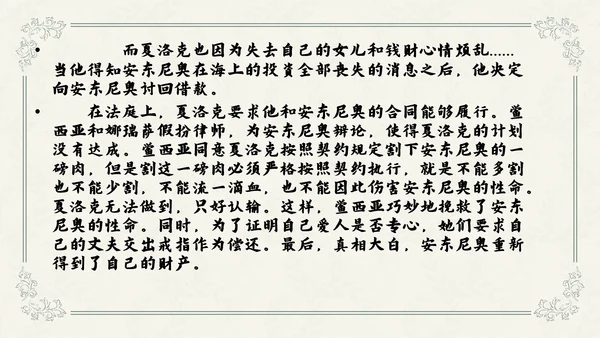 • 而夏洛克也因为失去自己的女儿和钱财心情烦乱......
当他得知安东尼奥在海上的投资全部丧失的消息之后，他决定
向安东尼奥讨回借款。
• 在法庭上，夏洛克要求他和安东尼奥的合同能够履行。萱
西亚和娜瑞萨假扮律师，为安东尼奥辩论，使得夏洛克的计划
没有达成。萱西亚同意夏洛克按照契约规定割下安东尼奥的一
磅肉，但是割这一磅肉必须严格按照契约执行，就是不能多割
也不能少割，不能流一滴血，也不能因此伤害安东尼奥的性命。
夏洛克无法做到，只好认输。这样，萱西亚巧妙地挽救了安东
尼奥的性命。同时，为了证明自己爱人是否专心，她们要求自
己的丈夫交出戒指作为偿还。最后，真相大白，安东尼奥重新
得到了自己的财产。